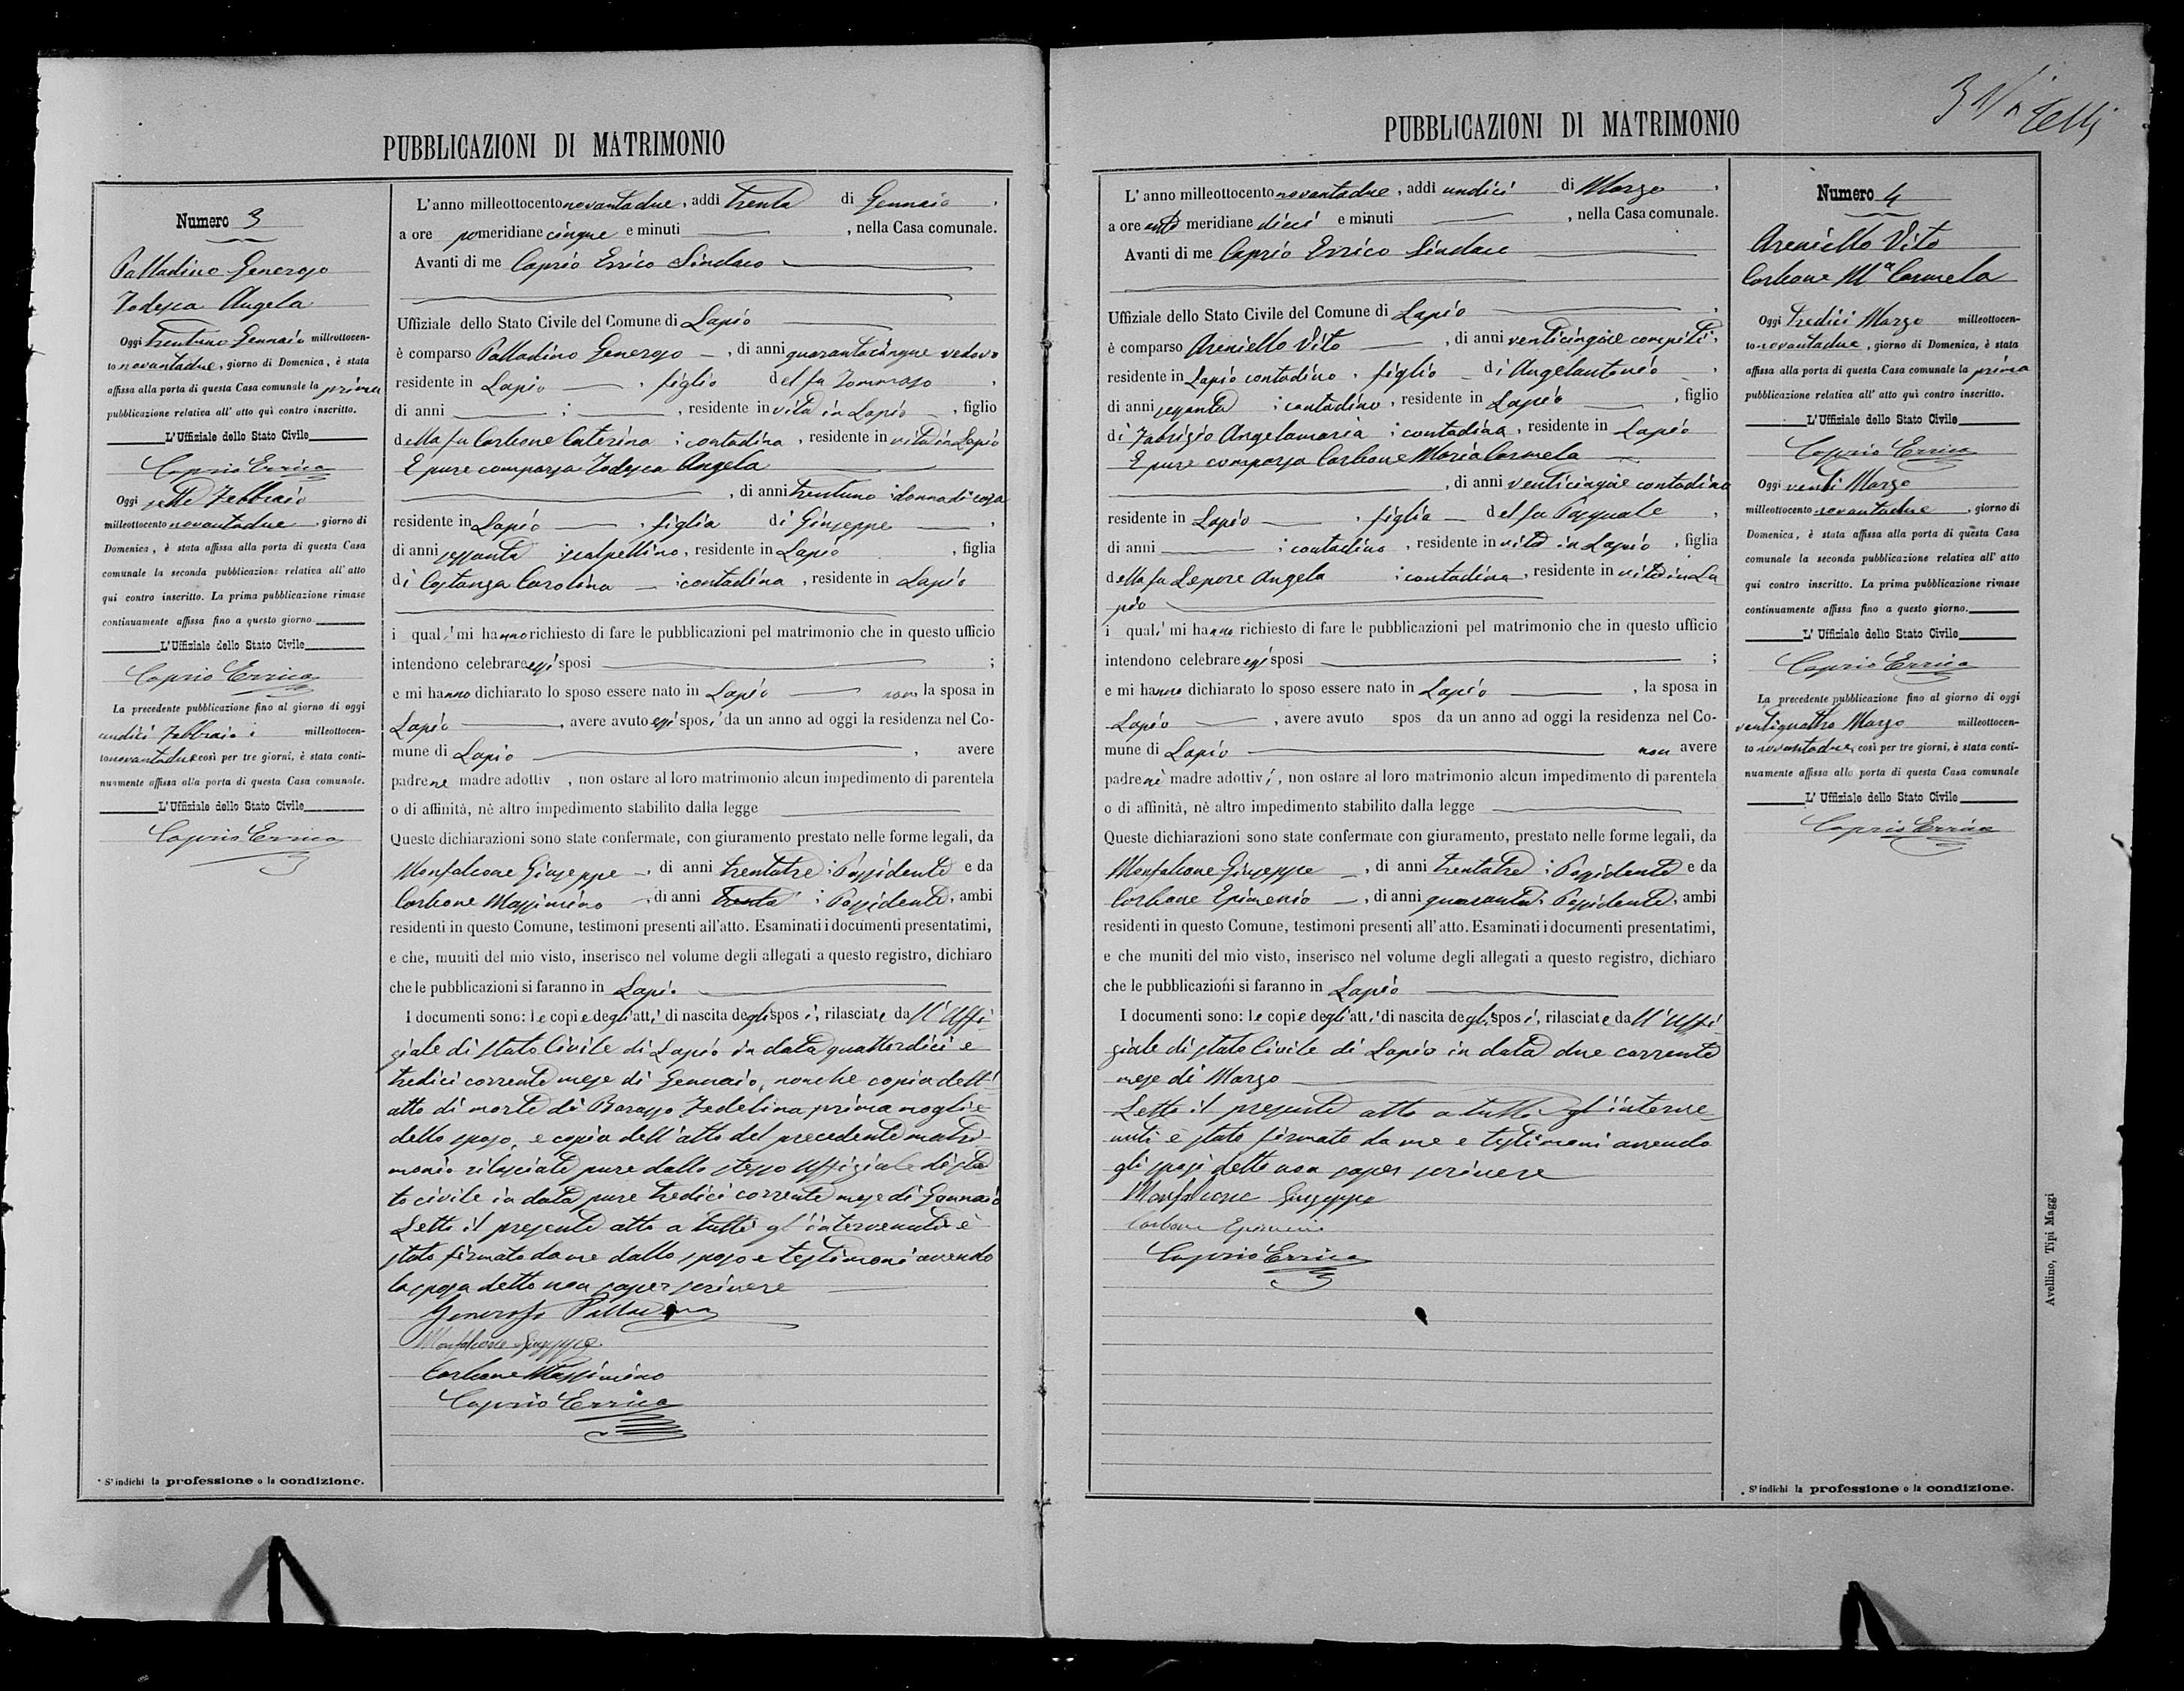 PUBBLICAZIONI DI MATRIMONIO
Numero 3
Palladino Generoso
Todesca Angela
Oggi trentuno Gennaio milleottocen-
to novantadue, giorno di Domenica, è stata
affissa alla porta di questa Casa comunale la prima
pubblicazione relativa all' atto quì contro inscritto.
L'Uffiziale dello Stato Civile
Caprio Errico
Oggi sette Febbraio
milleottocento novantadue, giorno di
Domenica, è stata affissa alla porta di questa Casa
comunale la seconda pubblicazione relativa all' atto
qui contro inscritto. La prima pubblicazione rimase
continuamente affissa fino a questo giorno.
L'Uffiziale dello Stato Civile
Caprio Errico
La precedente pubblicazione fino al giorno di oggi
undici Febbraio milleottocen-
to novantadue così per tre giorni, è stata conti-
nuamente affissa alla porta di questa Casa comunale.
L'Uffiziale dello Stato Civile
Caprio Errico
* S'indichi la professione o la condizione.
L'anno milleottocento novantadue, addi trenta di Gennaio,
a ore pomeridiane cinque e minuti , nella Casa comunale.
Avanti di me Caprio Errico Sindaco
Uffiziale dello Stato Civile del Comune di Lapio
è comparso Palladino Generoso, di anni quarantacinque vedovo
residente in Lapio, figlio del fu Tommaso,
di anni ; , residente in vita in Lapio, figlio
della fu Carbone Caterina ; contadina, residente in vita in Lapio
E pure comparsa Todesca Angela
, di anni trentuno ; donna di casa
residente in Lapio, figlia di Giuseppe,
di anni sessanta scalpellino, residente in Lapio, figlia
di Costanza Carolina ; contadina, residente in Lapio
i quali mi hanno richiesto di fare le pubblicazioni pel matrimonio che in questo ufficio
intendono celebrare essi sposi ;
e mi hanno dichiarato lo sposo essere nato in Lapio non la sposa in
Lapio, avere avuto essi sposi da un anno ad oggi la residenza nel Co-
mune di Lapio, avere
padre ne madre adottiv , non ostare al loro matrimonio alcun impedimento di parentela
o di affinità, nè altro impedimento stabilito dalla legge
Queste dichiarazioni sono state confermate, con giuramento prestato nelle forme legali, da
Monfalcone Giuseppe, di anni trentatre ; Possidente e da
Carbone Massimino, di anni trenta ; Possidente, ambi
residenti in questo Comune, testimoni presenti all'atto. Esaminati i documenti presentatimi,
e che, muniti del mio visto, inserisco nel volume degli allegati a questo registro, dichiaro
che le pubblicazioni si faranno in Lapio
I documenti sono: le copie degli atti di nascita degli sposi, rilasciate dall'Uffi-
ziale di stato Civile di Lapio in data quattordici e
tredici corrente mese di Gennaio, nonche copia dell'
atto di morte di Fedelina prima moglie
dello sposo, e copia dell'atto del precedente matri-
monio rilasciate pure dallo stesso Uffiziale di sta-
to civile in data pure tredici corrente mese di Gennaio
Letto il presente atto a tutti gl'intervenuti è
stato firmato da me dallo sposo e testimoni avendo
la sposa detto non saper scrivere
Generoso Palladino
Monfalcone Giuseppe
Carbone Massimino
Caprio Errico
PUBBLICAZIONI DI MATRIMONIO
L'anno milleottocento novantadue, addi undici di Marzo,
a ore anti meridiane dieci e minuti , nella Casa comunale.
Avanti di me Caprio Errico Sindaco
Uffiziale dello Stato Civile del Comune di Lapio,
è comparso Areniello Vito, di anni venticinque compiti,
residente in Lapio contadino, figlio di Angelantonio,
di anni sessanta ; contadino, residente in Lapio, figlio
di Fabrizio Angelamaria ; contadina, residente in Lapio
E pure comparsa Carbone Maria Carmela
, di anni venticinque contadina
residente in Lapio, figlia del fu Pasquale,
di anni ; contadino, residente in vita in Lapio, figlia
della fu Lepore Angela ; contadina, residente in vita in La
pio
i quali mi hanno richiesto di fare le pubblicazioni pel matrimonio che in questo ufficio
intendono celebrare essi sposi ;
e mi hanno dichiarato lo sposo essere nato in Lapio, la sposa in
Lapio, avere avuto spos da un anno ad oggi la residenza nel Co-
mune di Lapio non avere
padre nè madre adottivi, non ostare al loro matrimonio alcun impedimento di parentela
o di affinità, nè altro impedimento stabilito dalla legge
Queste dichiarazioni sono state confermate, con giuramento, prestato nelle forme legali, da
Monfalcone Giuseppe, di anni trentatre ; Possidente e da
Carbone Epimenio, di anni quaranta ; Possidente, ambi
residenti in questo Comune, testimoni presenti all' atto. Esaminati i documenti presentatimi,
e che muniti del mio visto, inserisco nel volume degli allegati a questo registro, dichiaro
che le pubblicazioni si faranno in Lapio
I documenti sono: le copie degli atti di nascita degli sposi, rilasciate dall'Uffi-
ziale di stato Civile di Lapio in data due corrente
mese di Marzo
Letto il presente atto a tutti gl'interve-
nuti è stato firmato da me e testimoni avendo
gli sposi detto non saper scrivere
Monfalcone Giuseppe
Carbone Epimenio
Caprio Errico
Numero 4
Areniello Vito
Carbone Mª Carmela
Oggi tredici Marzo milleottocen-
to novantadue, giorno di Domenica, è stata
affissa alla porta di questa Casa comunale la prima
pubblicazione relativa all' atto quì contro inscritto.
L'Uffiziale dello Stato Civile
Caprio Errico
Oggi venti Marzo
milleottocento novantadue, giorno di
Domenica, è stata affissa alla porta di questa Casa
comunale la seconda pubblicazione relativa all' atto
qui contro inscritto. La prima pubblicazione rimase
continuamente affissa fino a questo giorno.
L' Uffiziale dello Stato Civile
Caprio Errico
La precedente pubblicazione fino al giorno di oggi
ventiquattro Marzo milleottocen-
to novantadue, così per tre giorni, è stata conti-
nuamente affissa alla porta di questa Casa comunale
L' Uffiziale dello Stato Civile
Caprio Errico
* S'indichi la professione o la condizione.
Avellino, Tipi Maggi